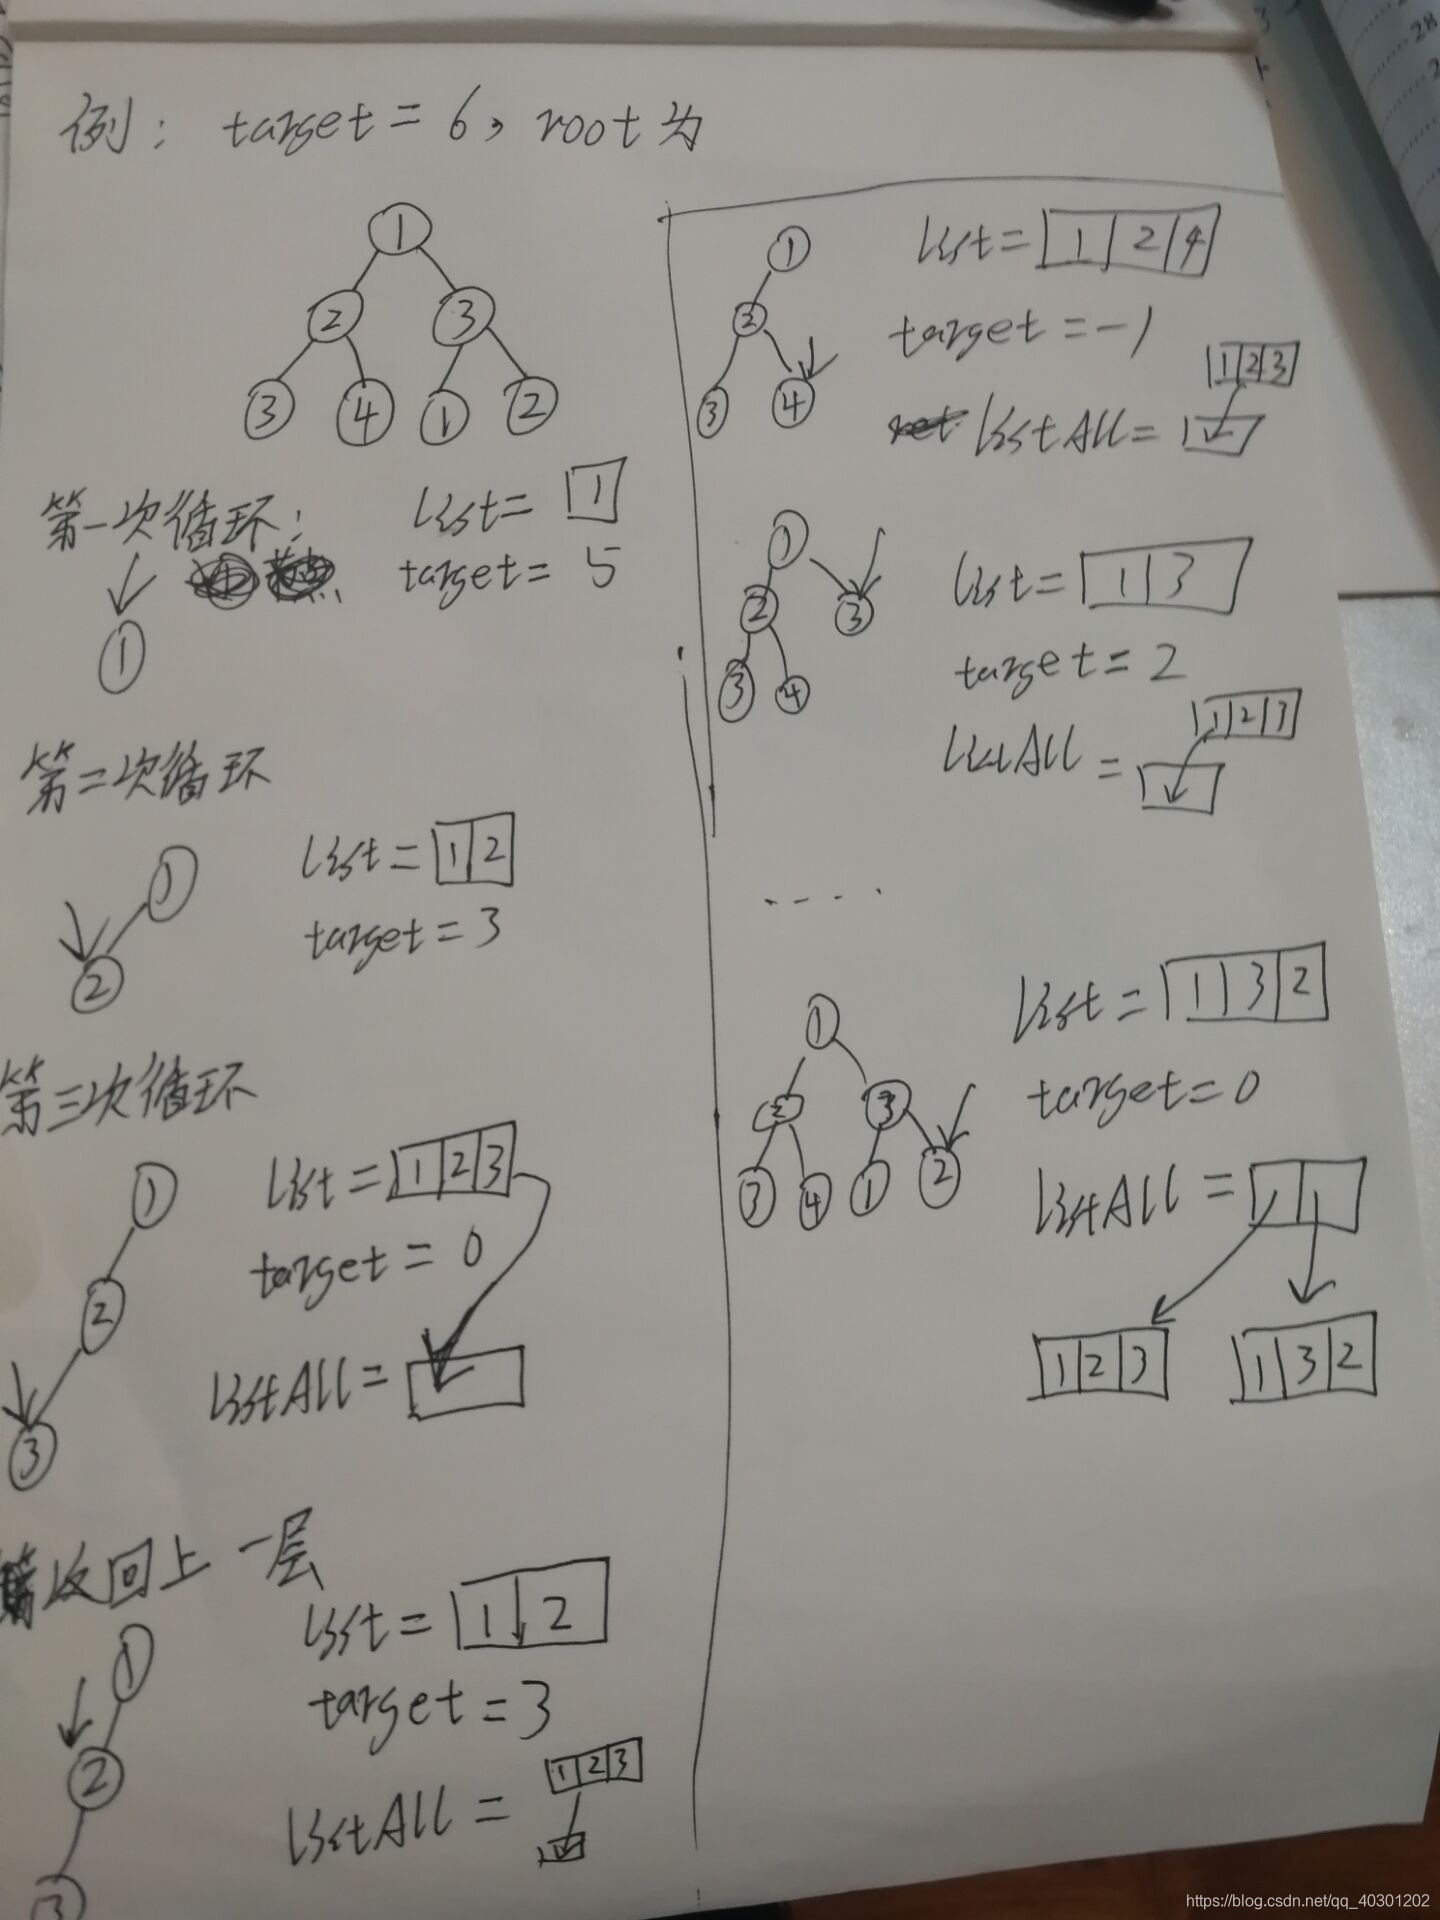 例：target=6，root为
1
2 3
3 4 1 2
第一次循环：
list= 1
target= 5
1
第二次循环
list= 1 2
target=3
1
2
第三次循环
list= 1 2 3
target=0
listAll=
1
2
3
返回上一层
list= 1 2
target=3
1 2 3
listAll=
1
2
3
list= 1 2 4
target=-1
1 2 3
listAll=
1
2
3 4
list= 1 3
target=2
1 2 3
listAll=
1
2 3
3 4
list= 1 3 2
target=0
listAll=
1 2 3
1 3 2
1
2 3
3 4 1 2
28
https://blog.csdn.net/qq_40301202